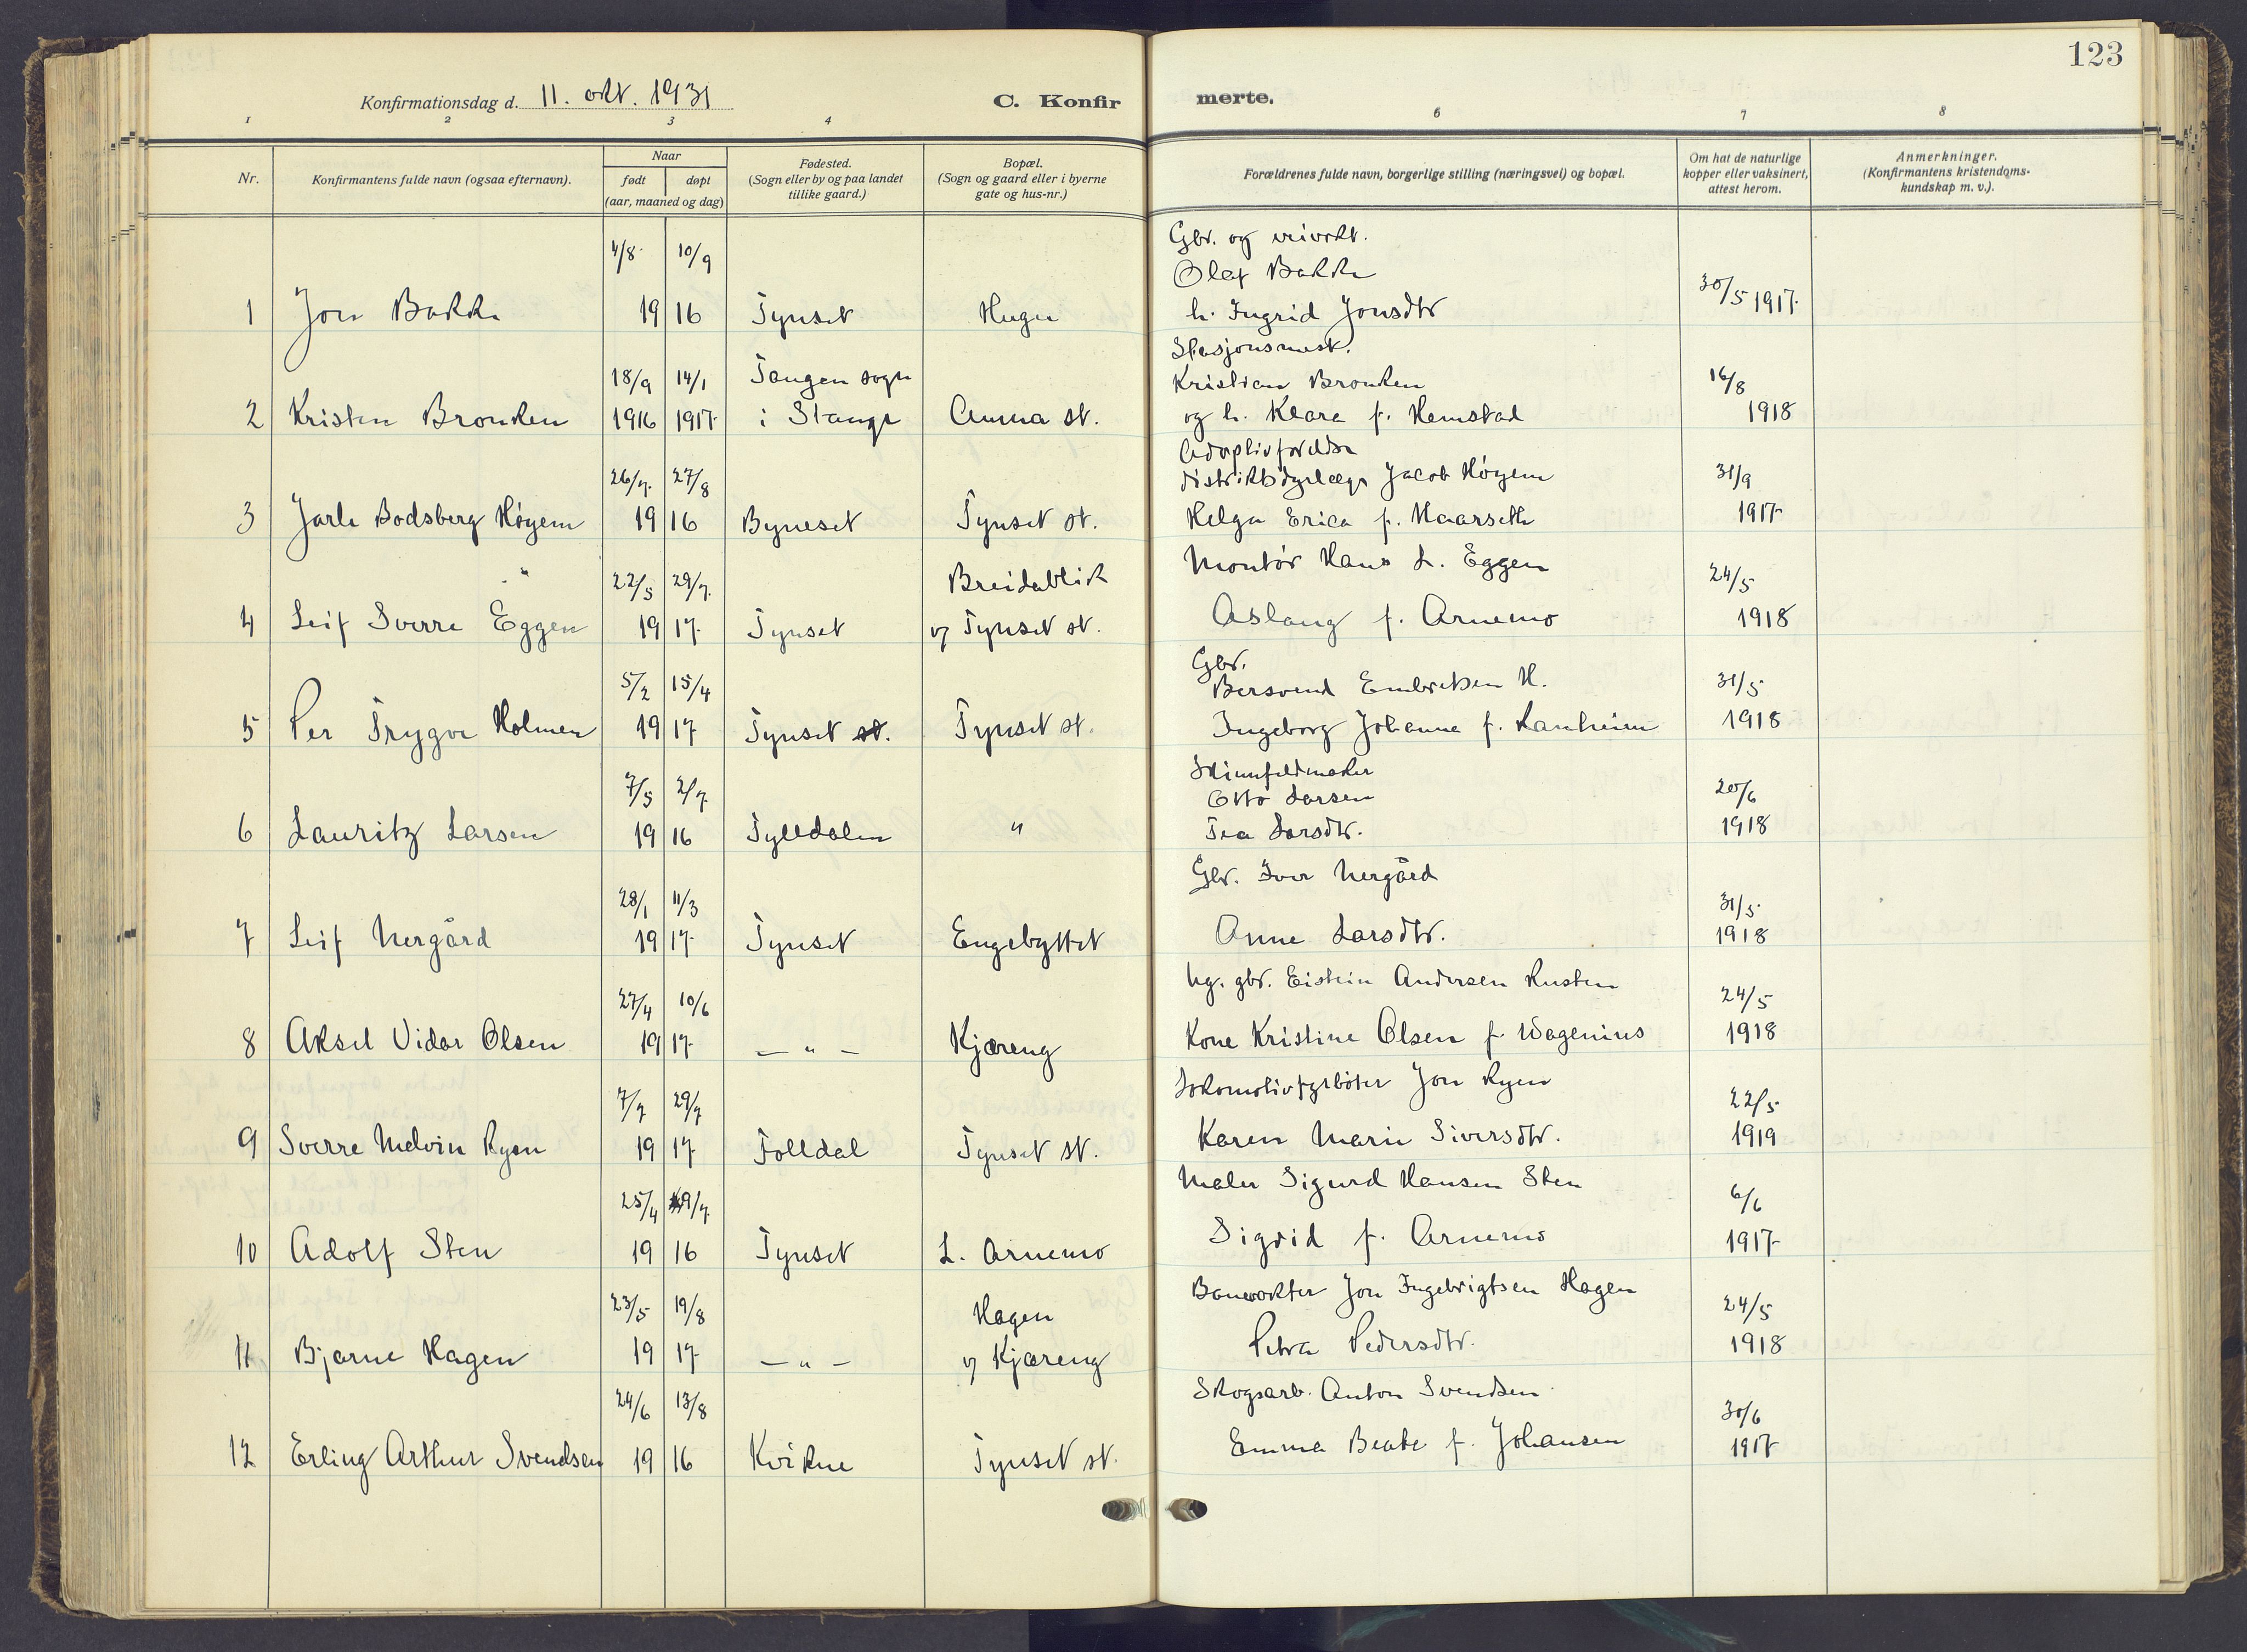 123
Konfirmationsdag d. 11. okt. 1931
C. Konfirmerte.
1 2 3 4 6 7 8
Nr.
Konfirmantens fulde navn (ogsaa efternavn).
Naar
født døpt
(aar, maaned og dag)
Fødested.
(Sogn eller by og paa landet
tillike gaard.)
Bopæl.
(Sogn og gaard eller i byerne
gate og hus-nr.)
Forældrenes fulde navn, borgerlige stilling (næringsvei) og bopæl.
Om hat de naturlige
kopper eller vaksinert,
attest herom.
Anmerkninger.
(Konfirmantens kristendoms-
kundskap m. v.).
Gbr. og
4/8 10/9 Olaf Bakke 30/5 1917
1 Jon Bakke 19 16 Tynset Hugu h. Ingrid Jonsdtr
Stasjonsmest.
18/9 14/1 Tangen sogn Kristian Bronken 16/8
2 Kristen Bronken 1916 1917 i Stange Auma st. og h. Klara f. Hemstad 1918
Adoptivforeldre
26/7 27/8 distriktsdyrlæge Jacob Höyem 31/9
3 Jarle Bodsberg Höyem 19 16 Byneset Tynset st. Helga Erica f. Haarseth 1917
22/5 29/7 Breidablik Montör Hans L. Eggen 24/5
4 Leif Sverre Eggen 19 17 Tynset v/ Tynset st. Aslaug f. Arnemo 1918
Gbr.
5/2 15/4 Bersvend Embretsen H. 31/5
5 Per Trygve Holmen 19 17 Tynset st. Tynset st. Ingeborg Johanna f. Ranheim 1918
Skinnfeldmaker
7/5 2/7 Otto Larsen 20/6
6 Lauritz Larsen 19 16 Tylldalen " Tea Larsdtr. 1918
Gbr. Iver Nergård
28/1 11/3 31/5
7 Leif Nergård 19 17 Tynset Engebyttet Anne Larsdtr. 1918
Ug. gbr. Eistein Andersen Rusten
27/4 10/6 24/5
8 Aksel Vidar Olsen 19 17 — " — Kjæreng Kone Kristine Olsen f. Wagenius 1918
Lokomotivfyrböter Jon Ryen
7/7 29/7 22/5
9 Sverre Melvin Ryen 19 17 Folldal Tynset st. Karen Marie Siversdtr. 1919
Maler Sigurd Hansen Sten
25/4 9/7 6/6
10 Adolf Sten 19 16 Tynset L. Arnemo Sigrid f. Arnemo 1917
Banevokter Jon Ingebrigtsen Hagen
23/5 19/8 Hagen 24/5
11 Bjarne Hagen 19 17 — " — v/ Kjæreng Petra Pedersdtr. 1918
Skogsarb. Anton Svendsen
24/6 13/8 30/6
12 Erling Arthur Svendsen 19 16 Kvikne Tynset st. Emma Beate f. Johansen 1917